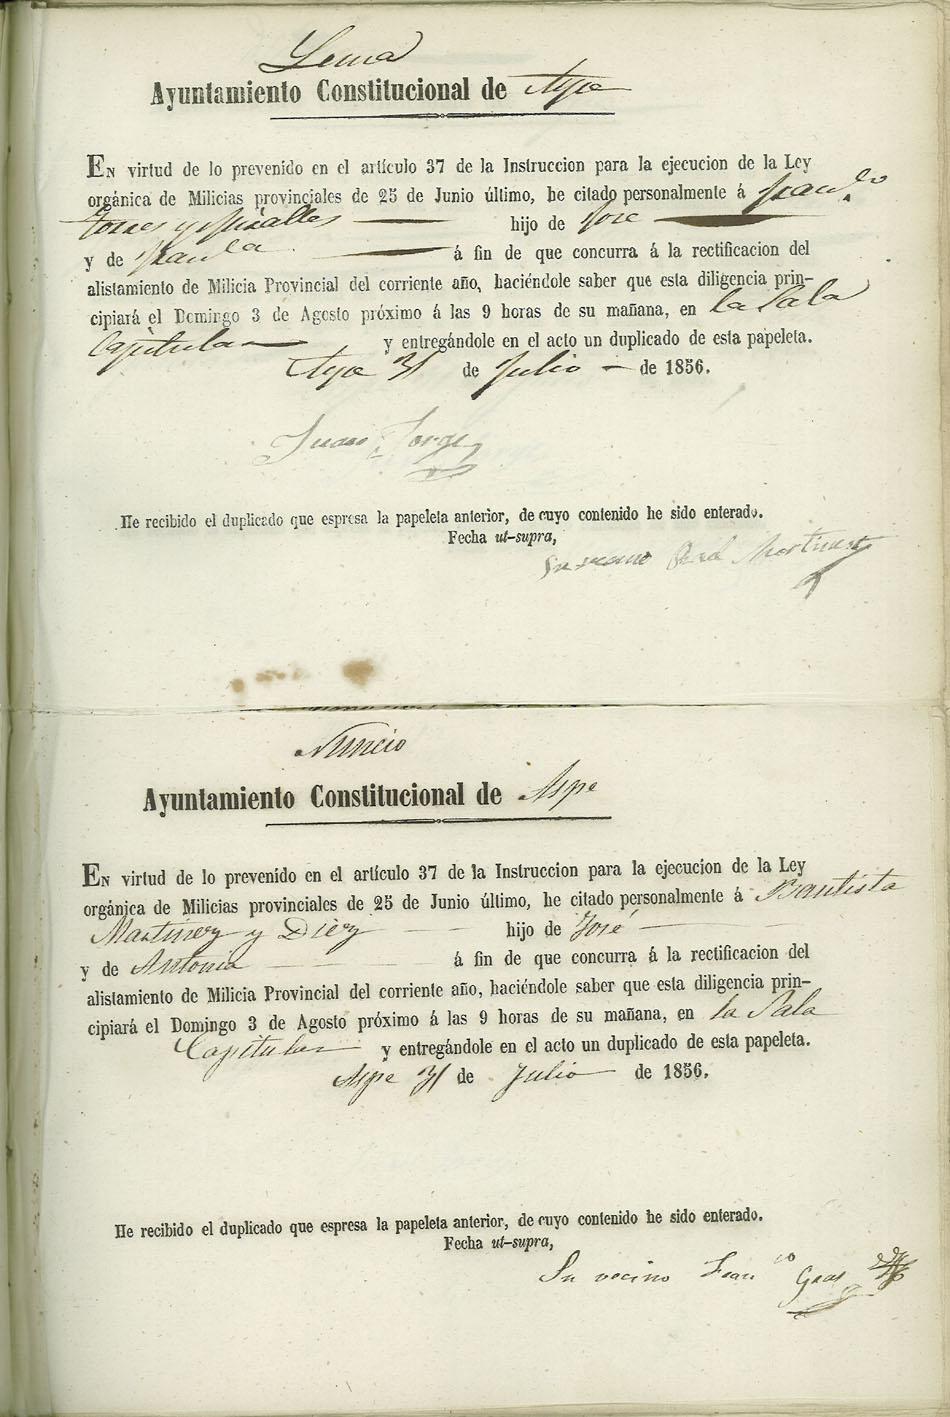 Ayuntamiento Constitucional de Aspe
EN virtud de lo prevenido en el artículo 37 de la Instruccion para la ejecucion de la Ley
orgánica de Milicias provinciales de 25 de Junio último, he citado personalmente á
Torres y Miralles hijo de Jose
y de á fin de que concurra á la rectificacion del
alistamiento de Milicia Provincial del corriente año, haciéndole saber que esta diligencia prin-
cipiará el Domingo 3 de Agosto próximo á las 9 horas de su mañana, en la Sala
Capitular y entregándole en el acto un duplicado de esta papeleta.
Aspe 31 de Julio de 1856.
Juan Jorge
He recibido el duplicado que espresa la papeleta anterior, de cuyo contenido he sido enterado.
Fecha ut-supra,
Martinez
Nuncio
Ayuntamiento Constitucional de Aspe
EN virtud de lo prevenido en el artículo 37 de la Instruccion para la ejecucion de la Ley
orgánica de Milicias provinciales de 25 de Junio último, he citado personalmente á Bautista
Martinez y Diez hijo de José
y de Antonia á fin de que concurra á la rectificacion del
alistamiento de Milicia Provincial del corriente año, haciéndole saber que esta diligencia prin-
cipiará el Domingo 3 de Agosto próximo á las 9 horas de su mañana, en la Sala
Capitular y entregándole en el acto un duplicado de esta papeleta.
Aspe 31 de Julio de 1856.
He recibido el duplicado que espresa la papeleta anterior, de cuyo contenido he sido enterado.
Fecha ut-supra,
Su vecino Franco